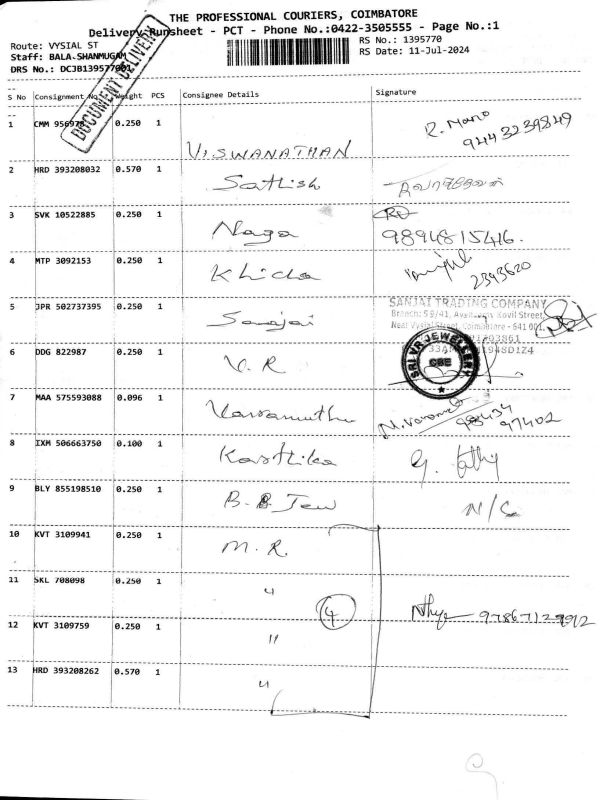 THE PROFESSIONAL COURIERS, COIMBATORE
Delivery Runsheet - PCT - Phone No.:0422-3505555 - Page No.:1
Route: VYSIAL ST
RS No.: 1395770
Staff: BALA SHANMUGAM
RS Date: 11-Jul-2024
DRS No.: DCJB139577001
DOCUMENT DELIVERY
S No Consignment No Weight PCS Consignee Details Signature
1 CMM 956978 0.250 1 VISWANATHAN R. Mano 9443239849
2 HRD 393208032 0.570 1 Sathish
3 SVK 10522885 0.250 1 Naga 9894815416.
4 MTP 3092153 0.250 1 Khicha 2393620
5 JPR 502737395 0.250 1 Sanjai
SANJAI TRADING COMPANY
Branch: 59/41, Kovil Street,
Near Vysial Street, Coimbatore - 641 001.
6 DDG 822987 0.250 1 V.R
SRI VR JEWELLERY
CBE
7 MAA 575593088 0.096 1 98434 97402
8 IXM 506663750 0.100 1 Karthika
9 BLY 855198510 0.250 1 B.B Jew N/S
10 KVT 3109941 0.250 1 M.R.
11 SKL 708098 0.250 1 "
4
12 KVT 3109759 0.250 1 "
13 HRD 393208262 0.570 1 "